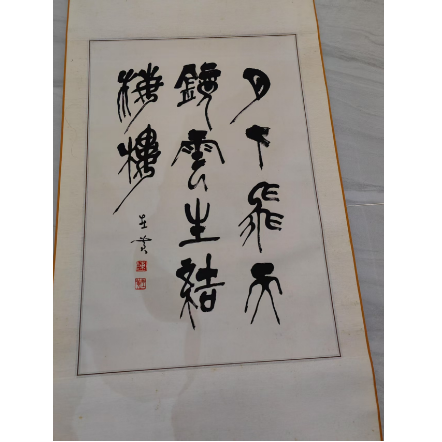 月下飛天
鏡雲生結
海樓